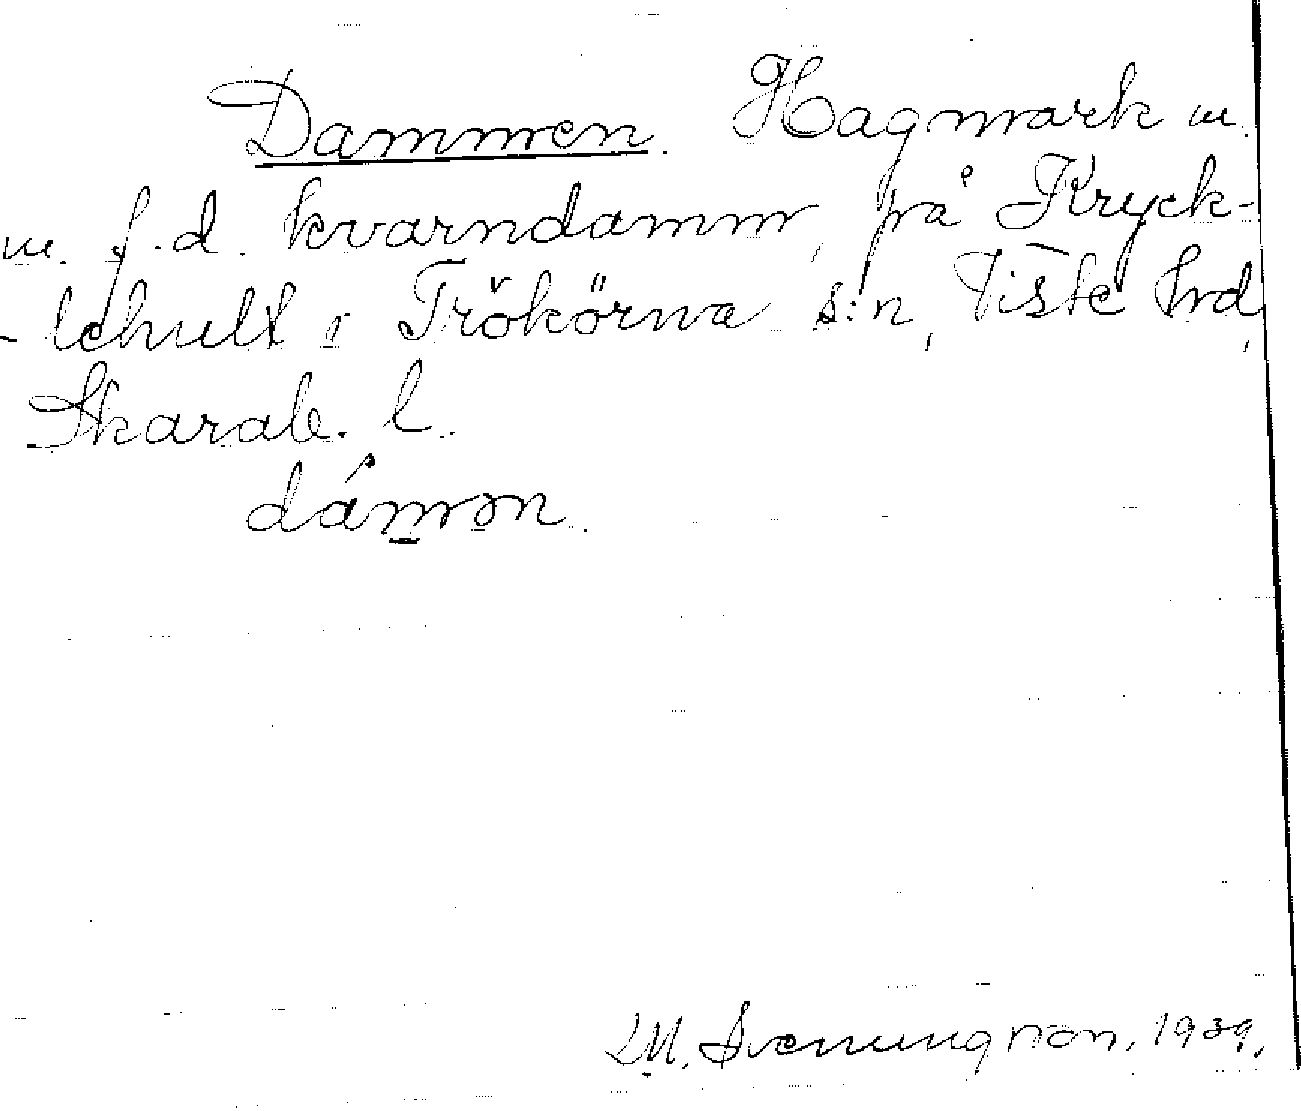 Dammen. Hagmark m.
m. f.d. kvarndamm, på Kryck-
-lehult i Trökörna s:n, Viste hrd,
Skarab. l.
dámən.
M. Svenungsson, 1939.